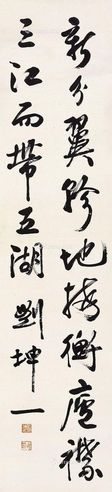 新分翼軫地接衡廬襟
三江而帶五湖 劉坤一